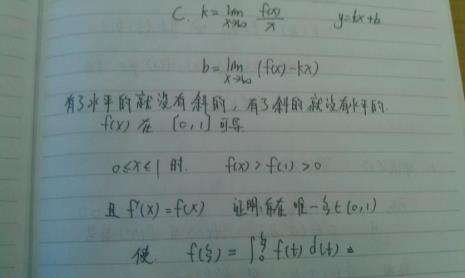 C. k = lim x→∞ f(x)/x y=kx+b
b = lim x→∞ (f(x)-kx)
有了水平的就没有斜的, 有了斜的就没有水平的.
f(x) 在 [0,1] 可导
0≤x≤1 时. f(x) > f(1) > 0
且 f'(x) = f(x) 证明: 存在唯一 ξ∈(0,1)
使 f(ξ) = ∫₀^ξ f(t) d(t)